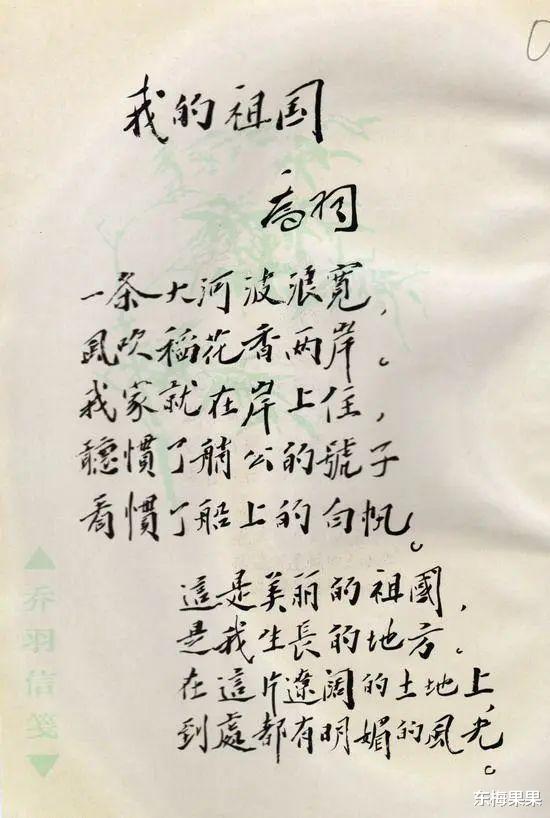 我的祖国
乔羽
一条大河波浪寬，
風吹稻花香两岸。
我家就在岸上住，
聽慣了艄公的號子
看慣了船上的白帆。
這是美丽的祖國，
是我生長的地方.
在這片遼阔的土地上，
到處都有明媚的風光。
乔羽信笺
东梅果果